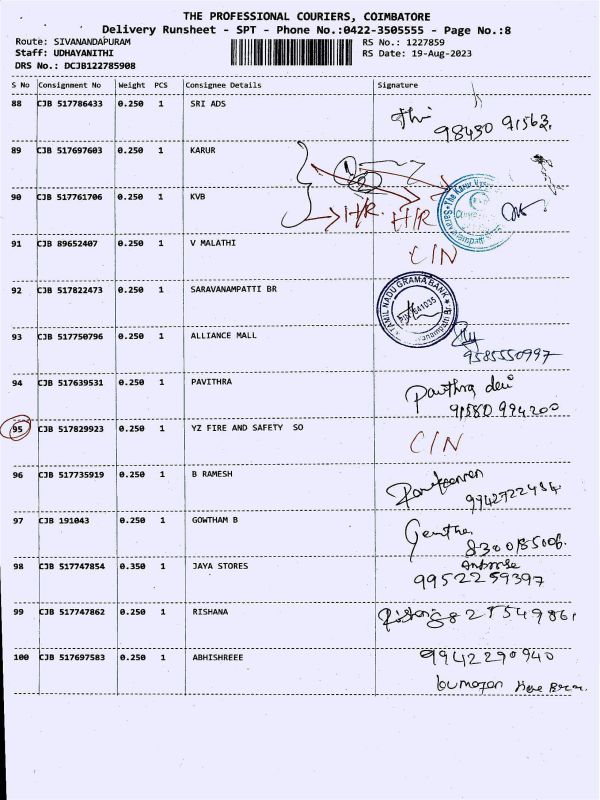 THE PROFESSIONAL COURIERS, COIMBATORE
Delivery Runsheet - SPT - Phone No.:0422-3505555 - Page No.:8
Route: SIVANANDAPURAM RS No.: 1227859
Staff: UDHAYANITHI RS Date: 19-Aug-2023
DRS No.: DCJB122785908
S No Consignment No Weight PCS Consignee Details Signature
88 CJB 517786433 0.250 1 SRI ADS
98430 91563
89 CJB 517697603 0.250 1 KARUR
90 CJB 517761706 0.250 1 KVB
H/R H/R
91 CJB 89652407 0.250 1 V MALATHI
C/N
92 CJB 517822473 0.250 1 SARAVANAMPATTI BR
TAMIL NADU GRAMA BANK
641035
93 CJB 517750796 0.250 1 ALLIANCE MALL
9585550997
94 CJB 517639531 0.250 1 PAVITHRA
Pavithra devi
91580 994200
95 CJB 517829923 0.250 1 YZ FIRE AND SAFETY SO
C/N
96 CJB 517735919 0.250 1 B RAMESH
9942722484
97 CJB 191043 0.250 1 GOWTHAM B
8300185006
98 CJB 517747854 0.350 1 JAYA STORES
9952259397
99 CJB 517747862 0.250 1 RISHANA
100 CJB 517697583 0.250 1 ABHISHREEE
9942290940